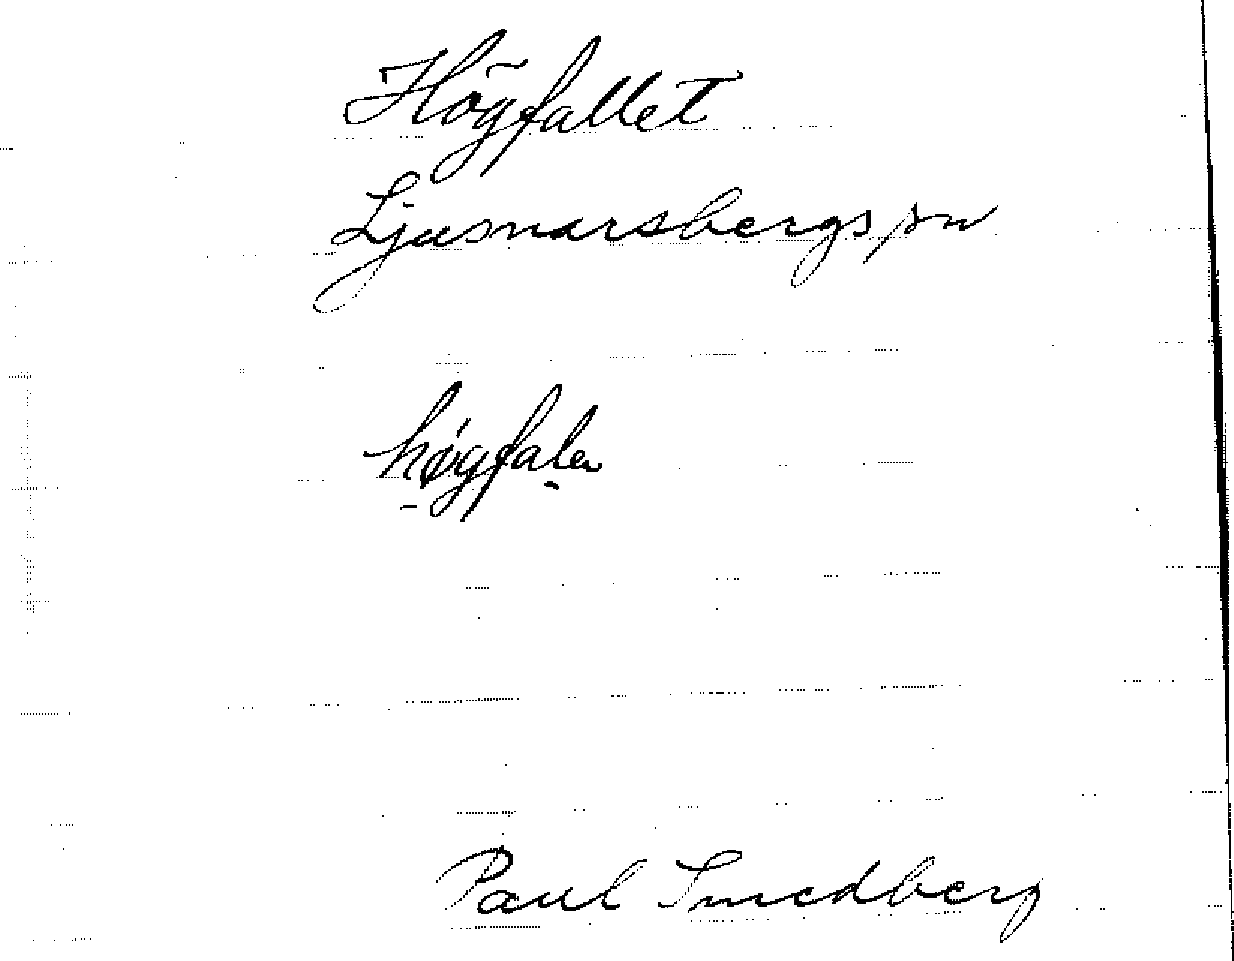 Högfallet
Ljusnarsbergs sn
høgfalеn
Paul Smedberg